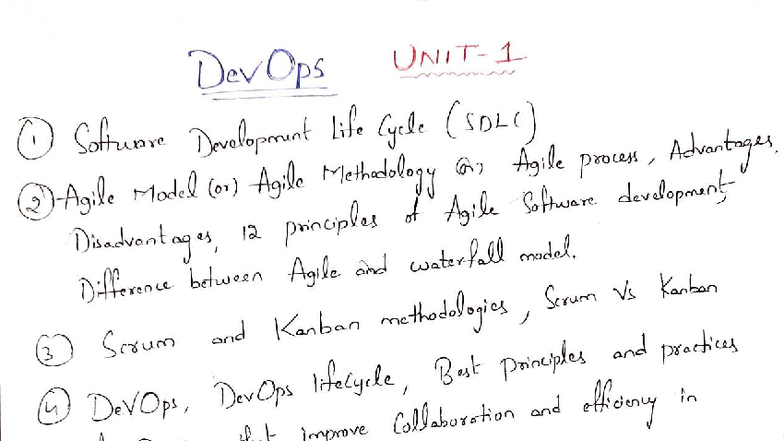 DevOps UNIT-1
① Software Development Life Cycle (SDLC)
② Agile Model (or) Agile Methodology (or) Agile process, Advantages,
Disadvantages, 12 principles of Agile Software development,
Difference between Agile and waterfall model.
③ Scrum and Kanban methodologies, Scrum Vs Kanban
④ DevOps, DevOps lifecycle, Best principles and practices
that improve Collaboration and efficiency in